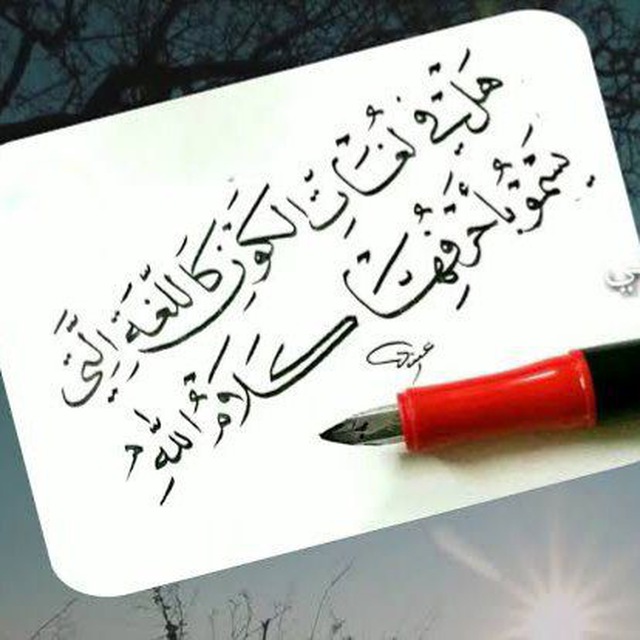 هَل في لُغَاتِ الكَوْنِ كَاللُّغَةِ الَّتِي
يَسْمُو بِأَحْرُفِهَا كَلَامُ اللَّهِ